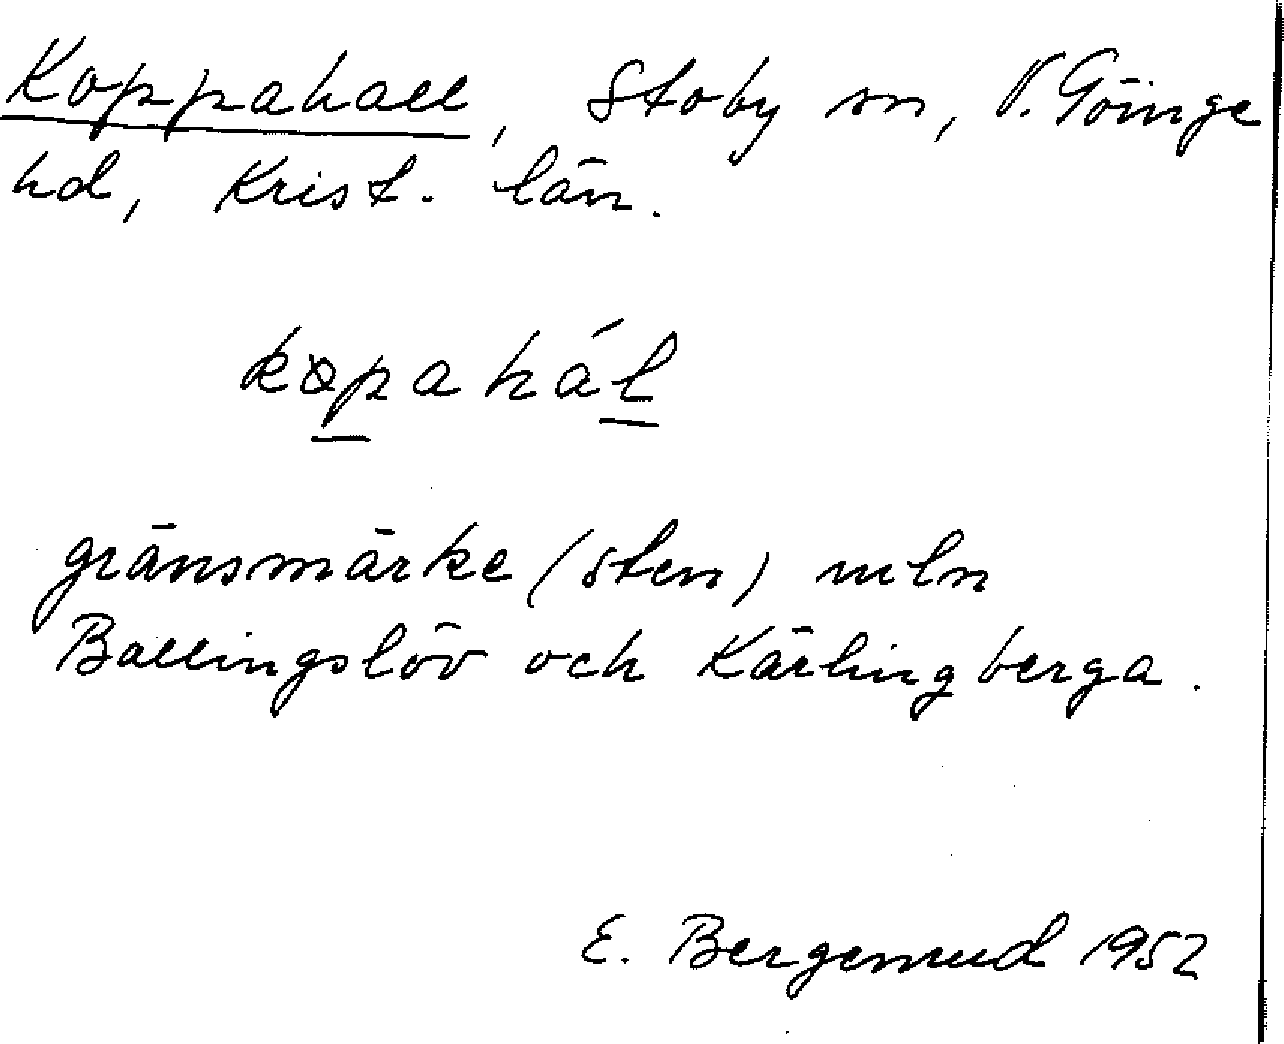 Koppahall, Stoby sn, V. Göinge
hd, Krist. län.
kopahál
gränsmärke (sten) mln
Ballingslöv och Kärlingberga.
E. Bergemud 1952